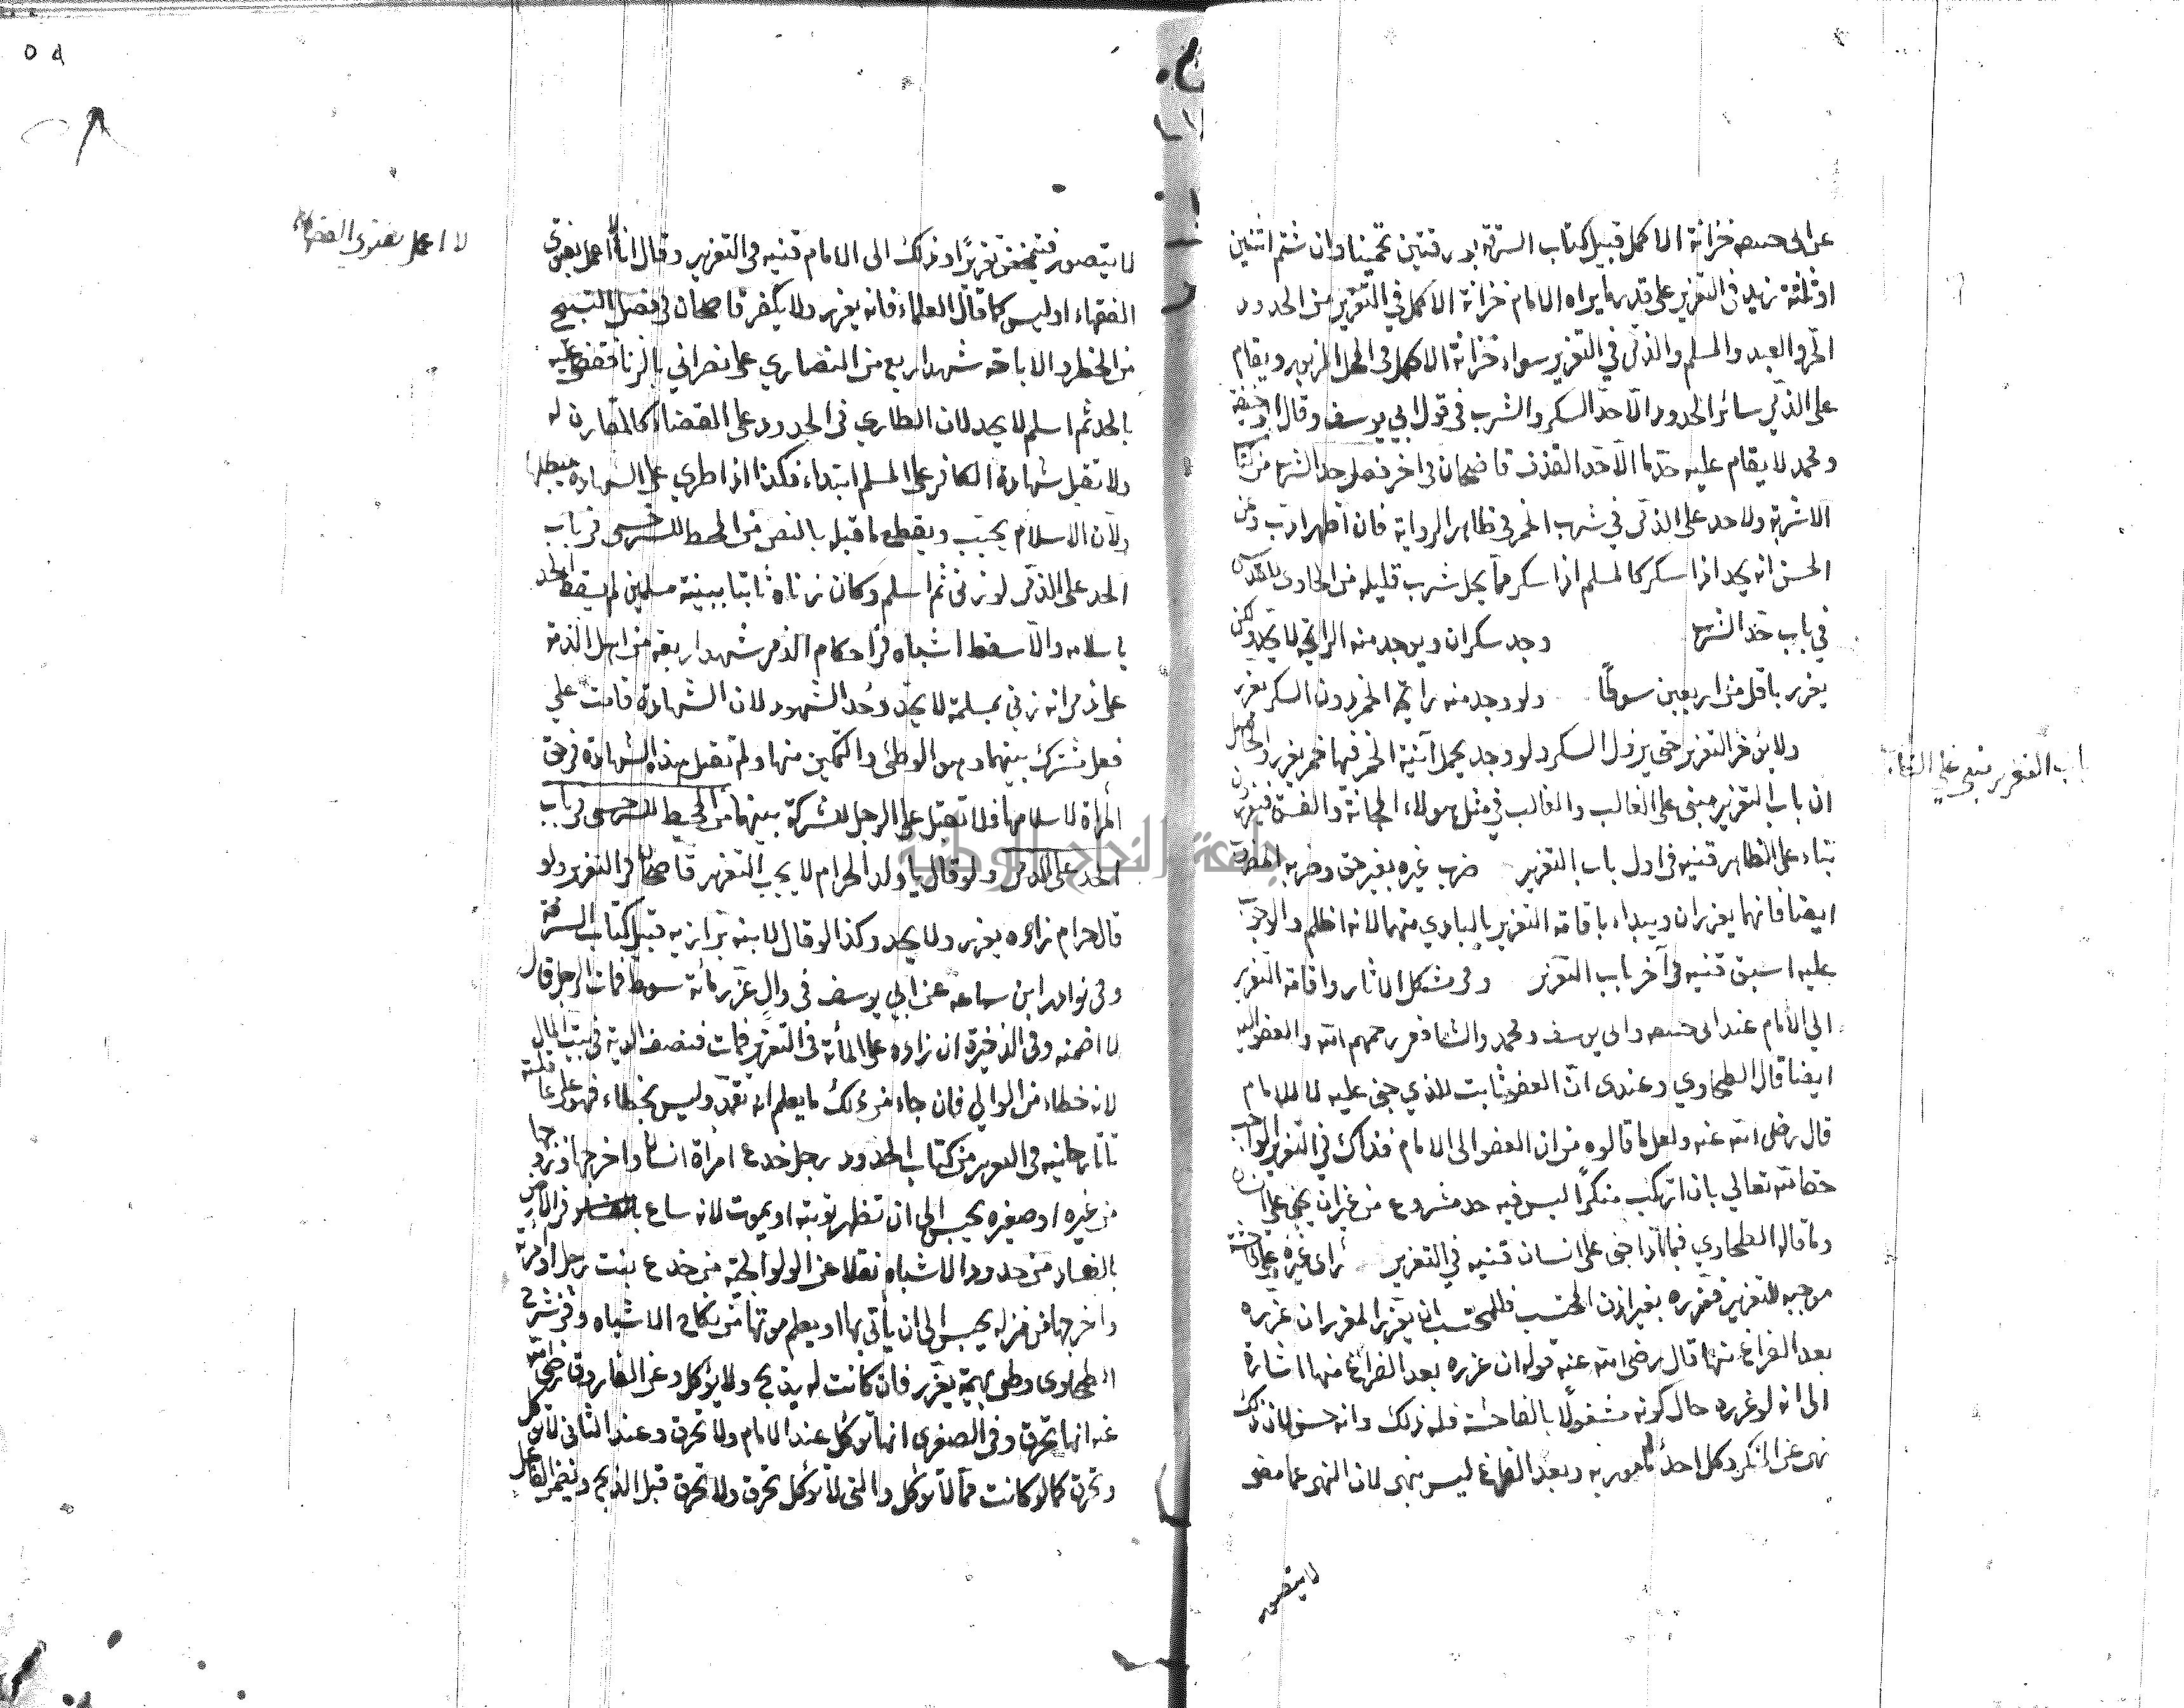 عن ابى حنيفه خزانة الاكمل قبيل كتاب السرقة بورقتين تخمينا وان شتم اثنين
او ثلثة زيد فى التعزير على قدر ما يراه الامام خزانة الاكمل فى التعزير من الحدود
الحر والعبد والمسلم والذمى فى التعزير سواء خزانة الاكمل فى المحل المزبور ويقام
على الذمى سائر الحدود الا حد السكر والشرب فى قول ابي يوسف وقال ابو حنيفة
ومحمد لا يقام عليه حد ما الا حد القذف قاضيخان فى اخر فصل حد الشرب من كتاب
الاشربة ولا حد على الذمى في شرب الخمر فى ظاهر الرواية فان اظهر ادب وعن
الحسن انه يحد اذا سكر كالمسلم اذا سكر مما يحل شرب قليله من الحاوى القدسى
في باب حد الشرب وجد سكران ويوجد منه الرائحة لا يحد ولكن
يعزر باقل من اربعين سوطًا ولو وجد منه رائحة الخمر دون السكر يعزر
ولا يؤخر التعزير حتى يزول السكر ولو وجد يحمل آنية الخمر فيها خمر يعزر والحاصل
ان باب التعزير مبنى على الغالب والغالب في مثل هولاء المجانة والفسق فيعزرون
بناء على الظاهر قنيه فى اول باب التعزير ضرب غيره بغير حق وضربه المضروب
ايضا فانهما يعزران ويبداء باقامة التعزير بالبادي منهما لانه اظلم والوجوب
عليه اسبق قنيه فى آخر باب التعزير وفى مشكل الاثار واقامة التعزير
الي الامام عند ابى حنيفه وابى يوسف ومحمد والشافعى رحمهم الله والعفو اليه
ايضا قال الطحاوي وعندى ان العفو ثابت للذي جنى عليه لا للامام
قال رضى الله عنه ولعل ما قالوه من ان العفو الى الامام فذاك في التعزير الواجب
حقا لله تعالي بان ارتكب منكرًا ليس فيه حد مشروع من غير ان يجنى على انسان
وما قاله الطحاوي فيما اذا جنى على انسان قنيه في التعزير رأى غيره على فاحشة
موجبه للتعزير فعزره بغير اذن المحتسب فللمحتسب ان يعزر المعزر ان عزره
بعد الفراغ منها قال رضى الله عنه قوله ان عزره بعد الفراغ منها اشارة
الى انه لو عزره حال كونه مشغولًا بالفاحشة فله ذلك وانه حسن لان ذلك
نهى عن المنكر وكل احد مامور به وبعد الفراغ ليس بنهى لان النهى عما مضى
لا يتصور
باب التعزير مبنى علي الغالب
لا يتصور فيتمحض تعزيرًا وذلك الى الامام قنيه فى التعزير وقال انا لا اعمل بفتوى
الفقهاء او ليس كما قال العلماء فانه يعزر ولا يكفر قاضيخان فى فصل التسبيح
من الحظر والاباحة شهد اربع من النصاري على نصراني بالزنا فقضى عليه
بالحد ثم اسلم لا يحد لان الطاري فى الحدود على القضاء كالمقارن له
ولا تقبل شهادة الكافر على المسلم ابتداء فكذا اذا طري على الشهادة فيبطلها
ولان الاسلام يجب ويقطع ما قبله بالنص من المحيط للسرخسى فى باب
الحد على الذمى لو زنى ثم اسلم وكان زناه ثابتا ببينة مسلمين لم يسقط الحد
باسلامه والا سقط اشباه فى احكام الذمى شهد اربعة من اهل الذمة
على ذمى انه زني بمسلمة لا يحد وحد الشهود لان الشهادة قامت علي
فعل مشترك بينهما وهو الوطئ والتمكين منها ولم تقبل هذه الشهادة فى حق
المرأة لاسلامها فلا تقبل على الرجل للشركة بينهما من المحيط للسرخسى فى باب
الحد على الذمى ولو قال يا ولد الحرام لا يجب التعزير قاضيخان فى التعزير ولو
قال حرام زاده يعزر ولا يحد وكذا لو قال لابنه بزازيه قبيل كتاب السرقة
وفى نوادر ابن سماعه عن ابي يوسف فى وال عزر مائة سوط فمات الرجل قال
لا اضمنه وفى الذخيرة ان زاده على المائة فى التعزير فمات فنصف الدية فى بيت المال
لانه خطاء من الوالي فان جاء من ذلك ما يعلم انه تعمد وليس بخطاء فهو على عاقلته
تاتارخانيه فى التعزير من كتاب الحدود رجل خدع امرأة انسان واخرجها وزوجها
من غيره او صغيره يحبس الى ان تظهر توبته او يموت لانه ساع فى الارض
بالفساد من حدود الاشباه نقلا عن الولوالجية من خدع بنت رجل او امرأته
واخرجها من منزله يحبس الى ان يأتى بها او يعلم موتها من نكاح الاشباه وفى شرح
الطحاوى وطى بهيمة يعزر فان كانت له يذبح ولا يؤكل وعن الفاروق رضى الله
عنه انها تحرق وفى الصغرى انها تؤكل عند الامام ولا تحرق وعند الثانى لا تؤكل
وتحرق كما لو كانت مما لا تؤكل والتى لا تؤكل تحرق ولا تحرق قبل الذبح ويضمن الفاعل
لا اعمل بفتوي الفقهاء